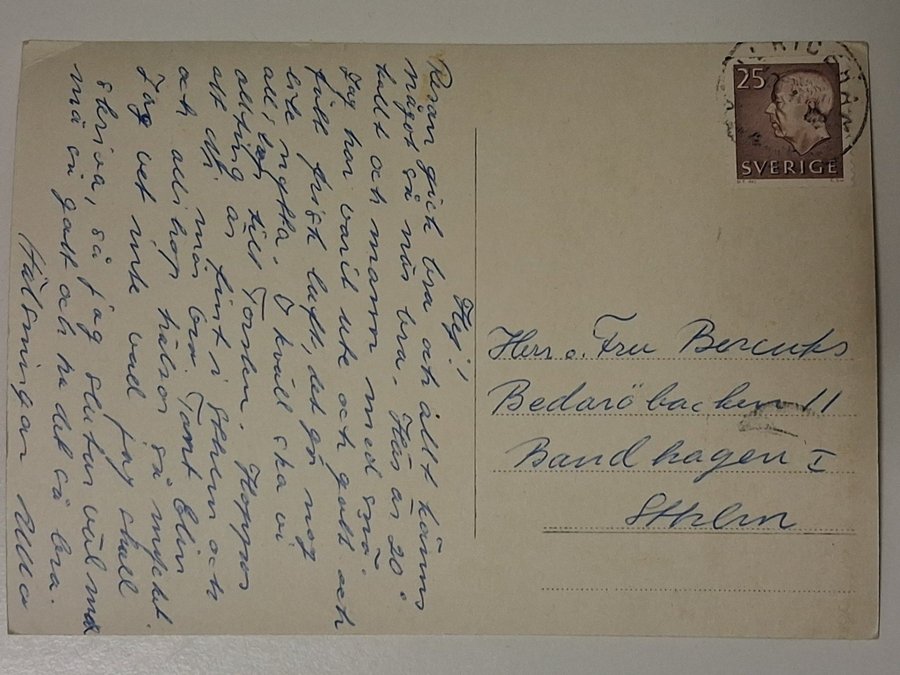 Hej!
Resan gick bra och allt känns
något så när bra. Här är 20°
kallt och massor med snö.
Idag har varit ute och gått och
fått frisk luft, det gör nog
lite nytta. I kväll ska vi
allihop till Torslen. Hoppas
allting är fint i Sthlm och
att du mår bra. Tant Elin
och allihop hälsar så mycket.
Jag vet inte vad jag skall
skriva, så jag slutar väl med
må så gott och ha det så bra.
Hälsningar Ulla
25
SVERIGE
Herr o. Fru
Bedaröbacken 11
Bandhagen I
Sthlm